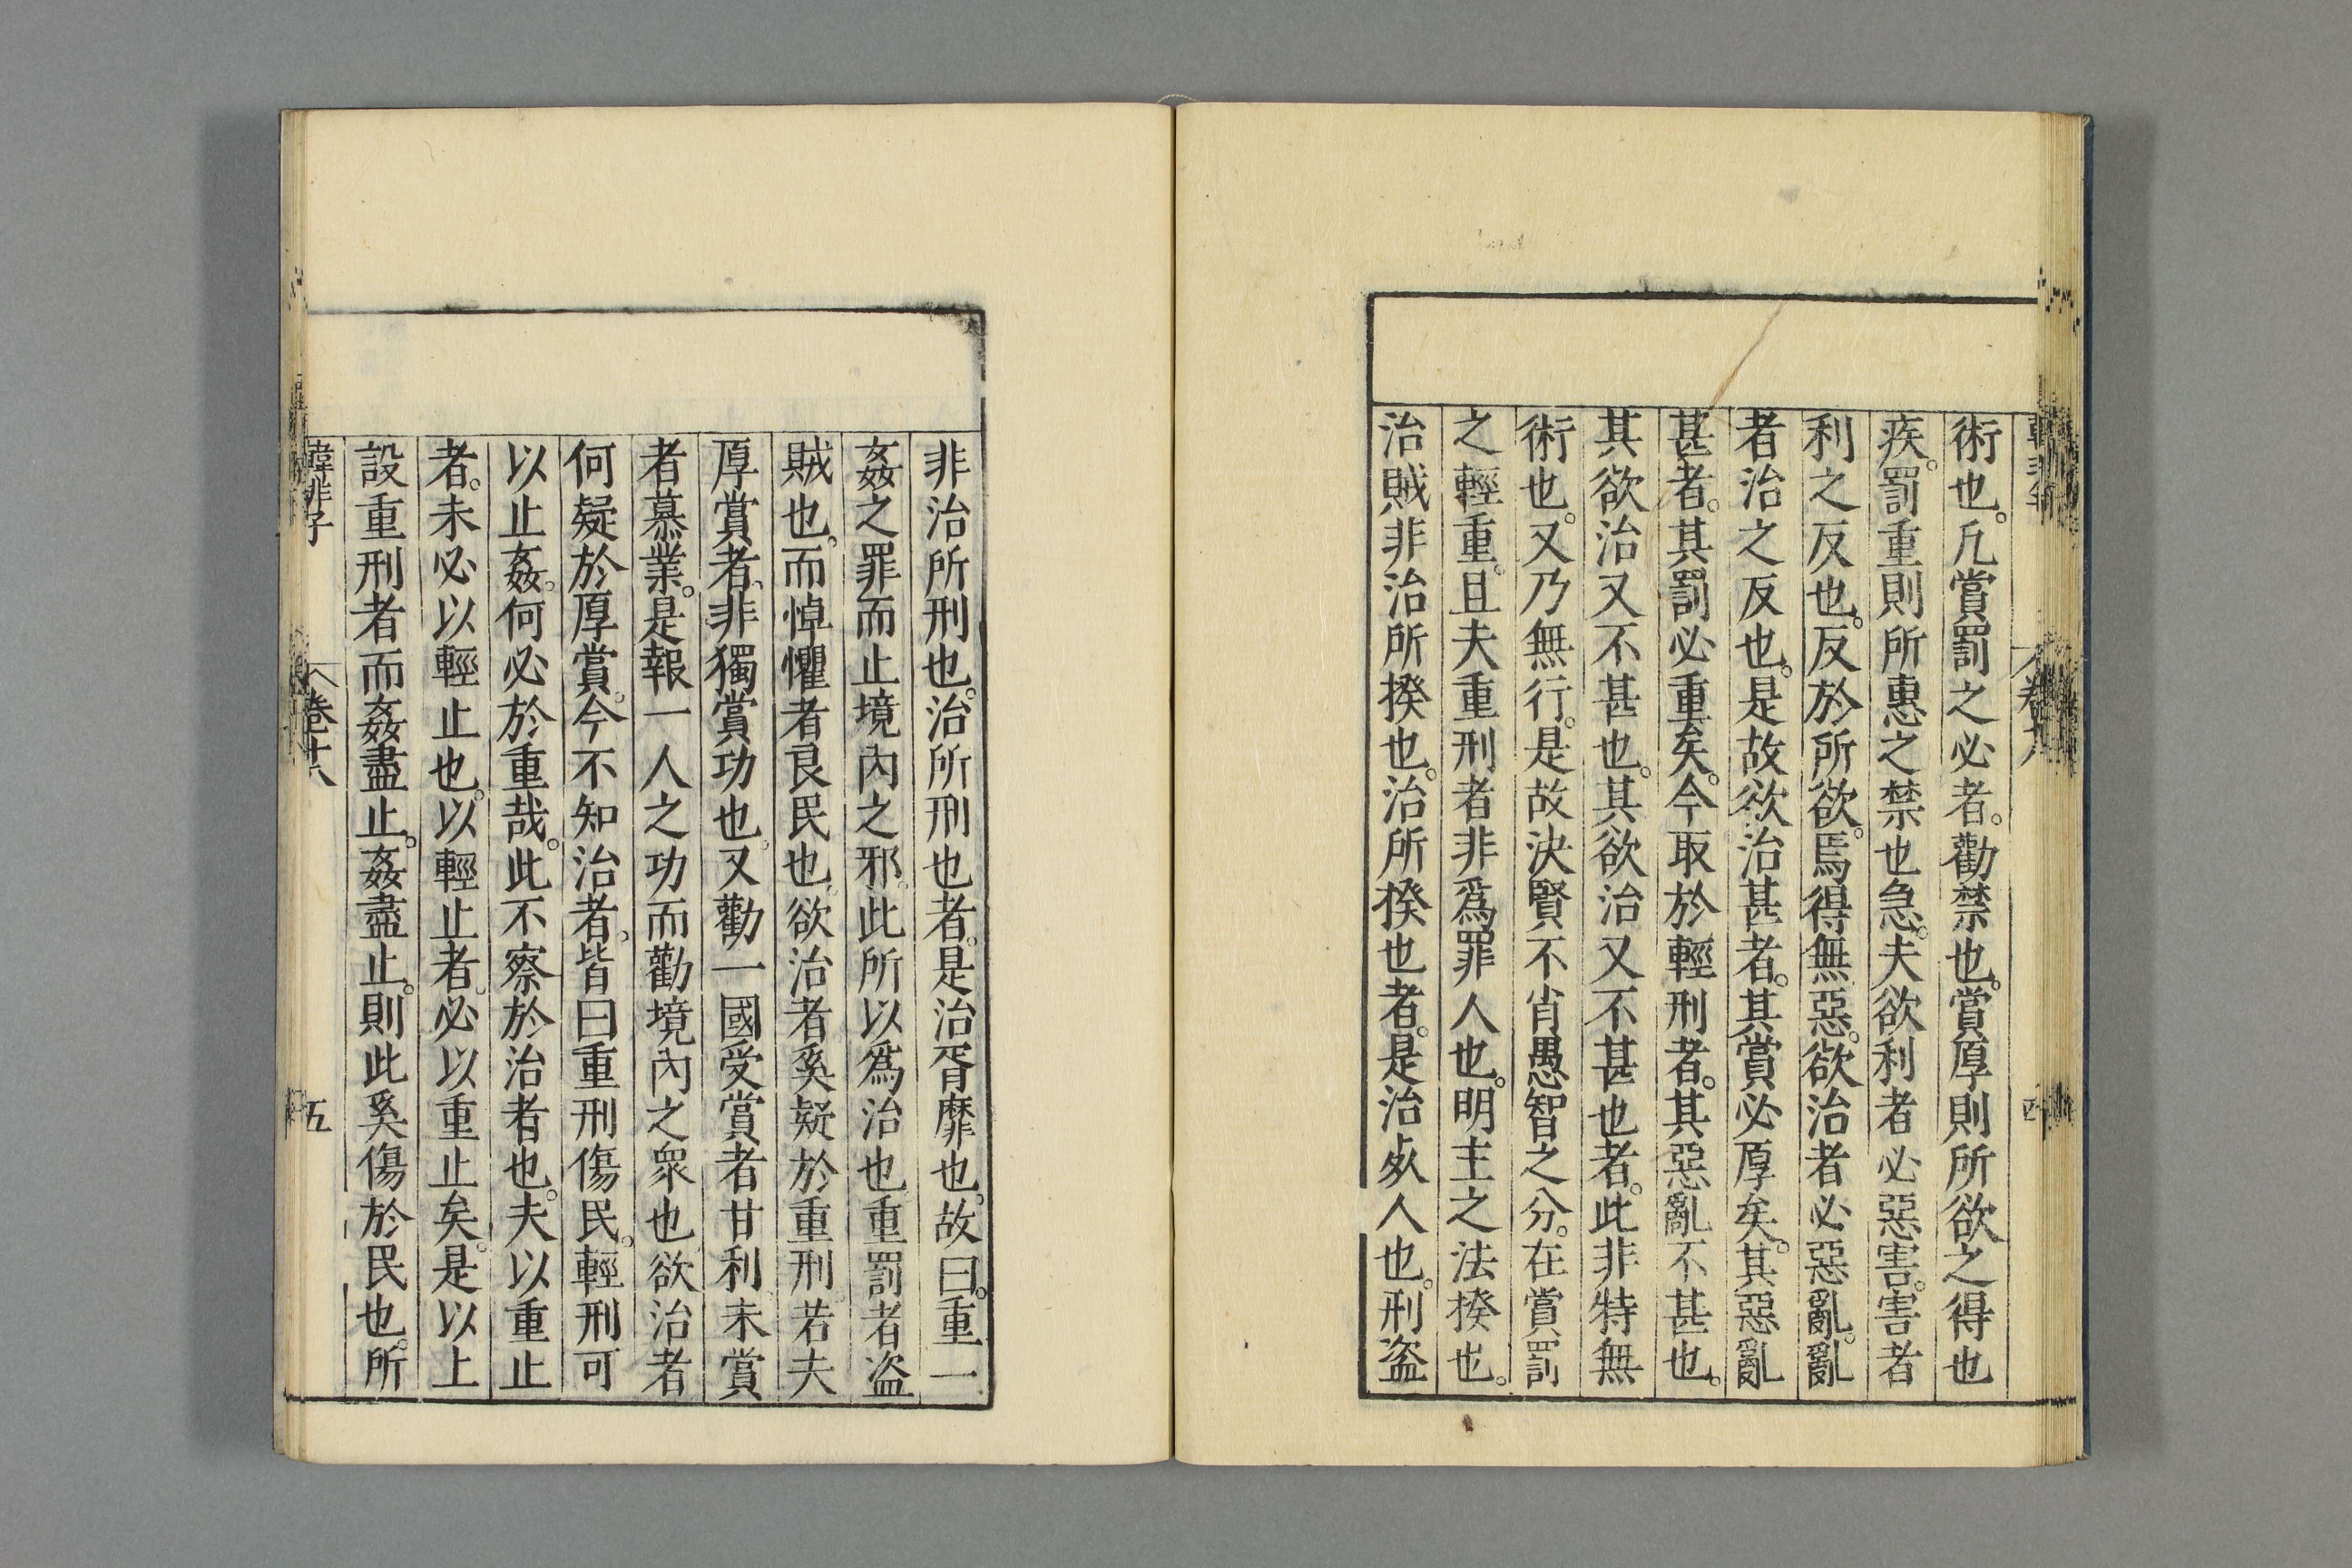 術也。凡賞罰之必者。勸禁也。賞厚則所欲之得也
疾。罰重則所惠之禁也急。夫欲利者必惡害。害者
利之反也。反於所欲。焉得無惡。欲治者必惡亂。亂
者治之反也。是故欲治甚者。其賞必厚矣。其惡亂
甚者。其罰必重矣。今取於輕刑者。其惡亂不甚也。
其欲治又不甚也。其欲治又不甚也者。此非特無
術也。又乃無行。是故決賢不肖愚智之分。在賞罰
之輕重。且夫重刑者非爲罪人也。明主之法揆也。
治賊非治所揆也。治所揆也者。是治死人也。刑盜
非治所刑也。治所刑也者。是治胥靡也。故曰。重一
姦之罪而止境內之邪。此所以爲治也重罰者盜
賊也。而悼懼者良民也。欲治者奚疑於重刑若夫
厚賞者。非獨賞功也。又勸一國受賞者甘利未賞
者慕業。是報一人之功而勸境內之眾也欲治者
何疑於厚賞。今不知治者。皆曰重刑傷民。輕刑可
以止姦。何必於重哉。此不察於治者也。夫以重止
者。未必以輕止也。以輕止者。必以重止矣。是以上
設重刑者而姦盡止。姦盡止。則此奚傷於民也。所
韓非子 卷十八 五